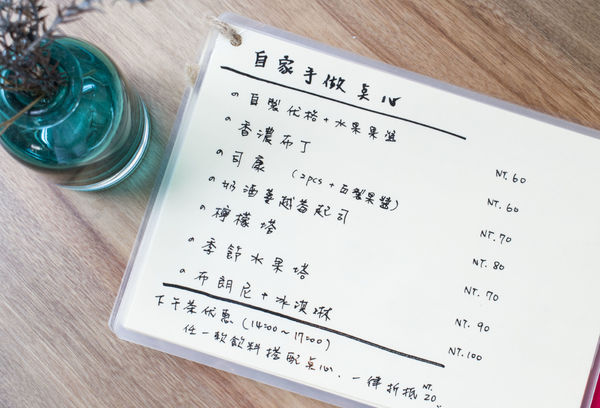 自家手做桌心
自製优格+水果果醬 NT.60
香濃布丁 NT.60
司康 (2pcs+自製果醬) NT.70
奶酒蔓越莓起司 NT.80
檸檬塔 NT.70
季節水果塔 NT.90
布朗尼+冰淇淋 NT.100
下午茶优惠 (14:00~17:00)
任一款飲料搭配桌心、一律折抵 NT.20、